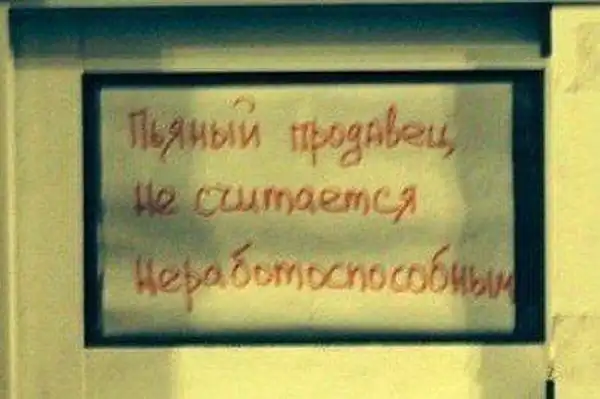 Пьяный продавец
не считается
неработоспособным